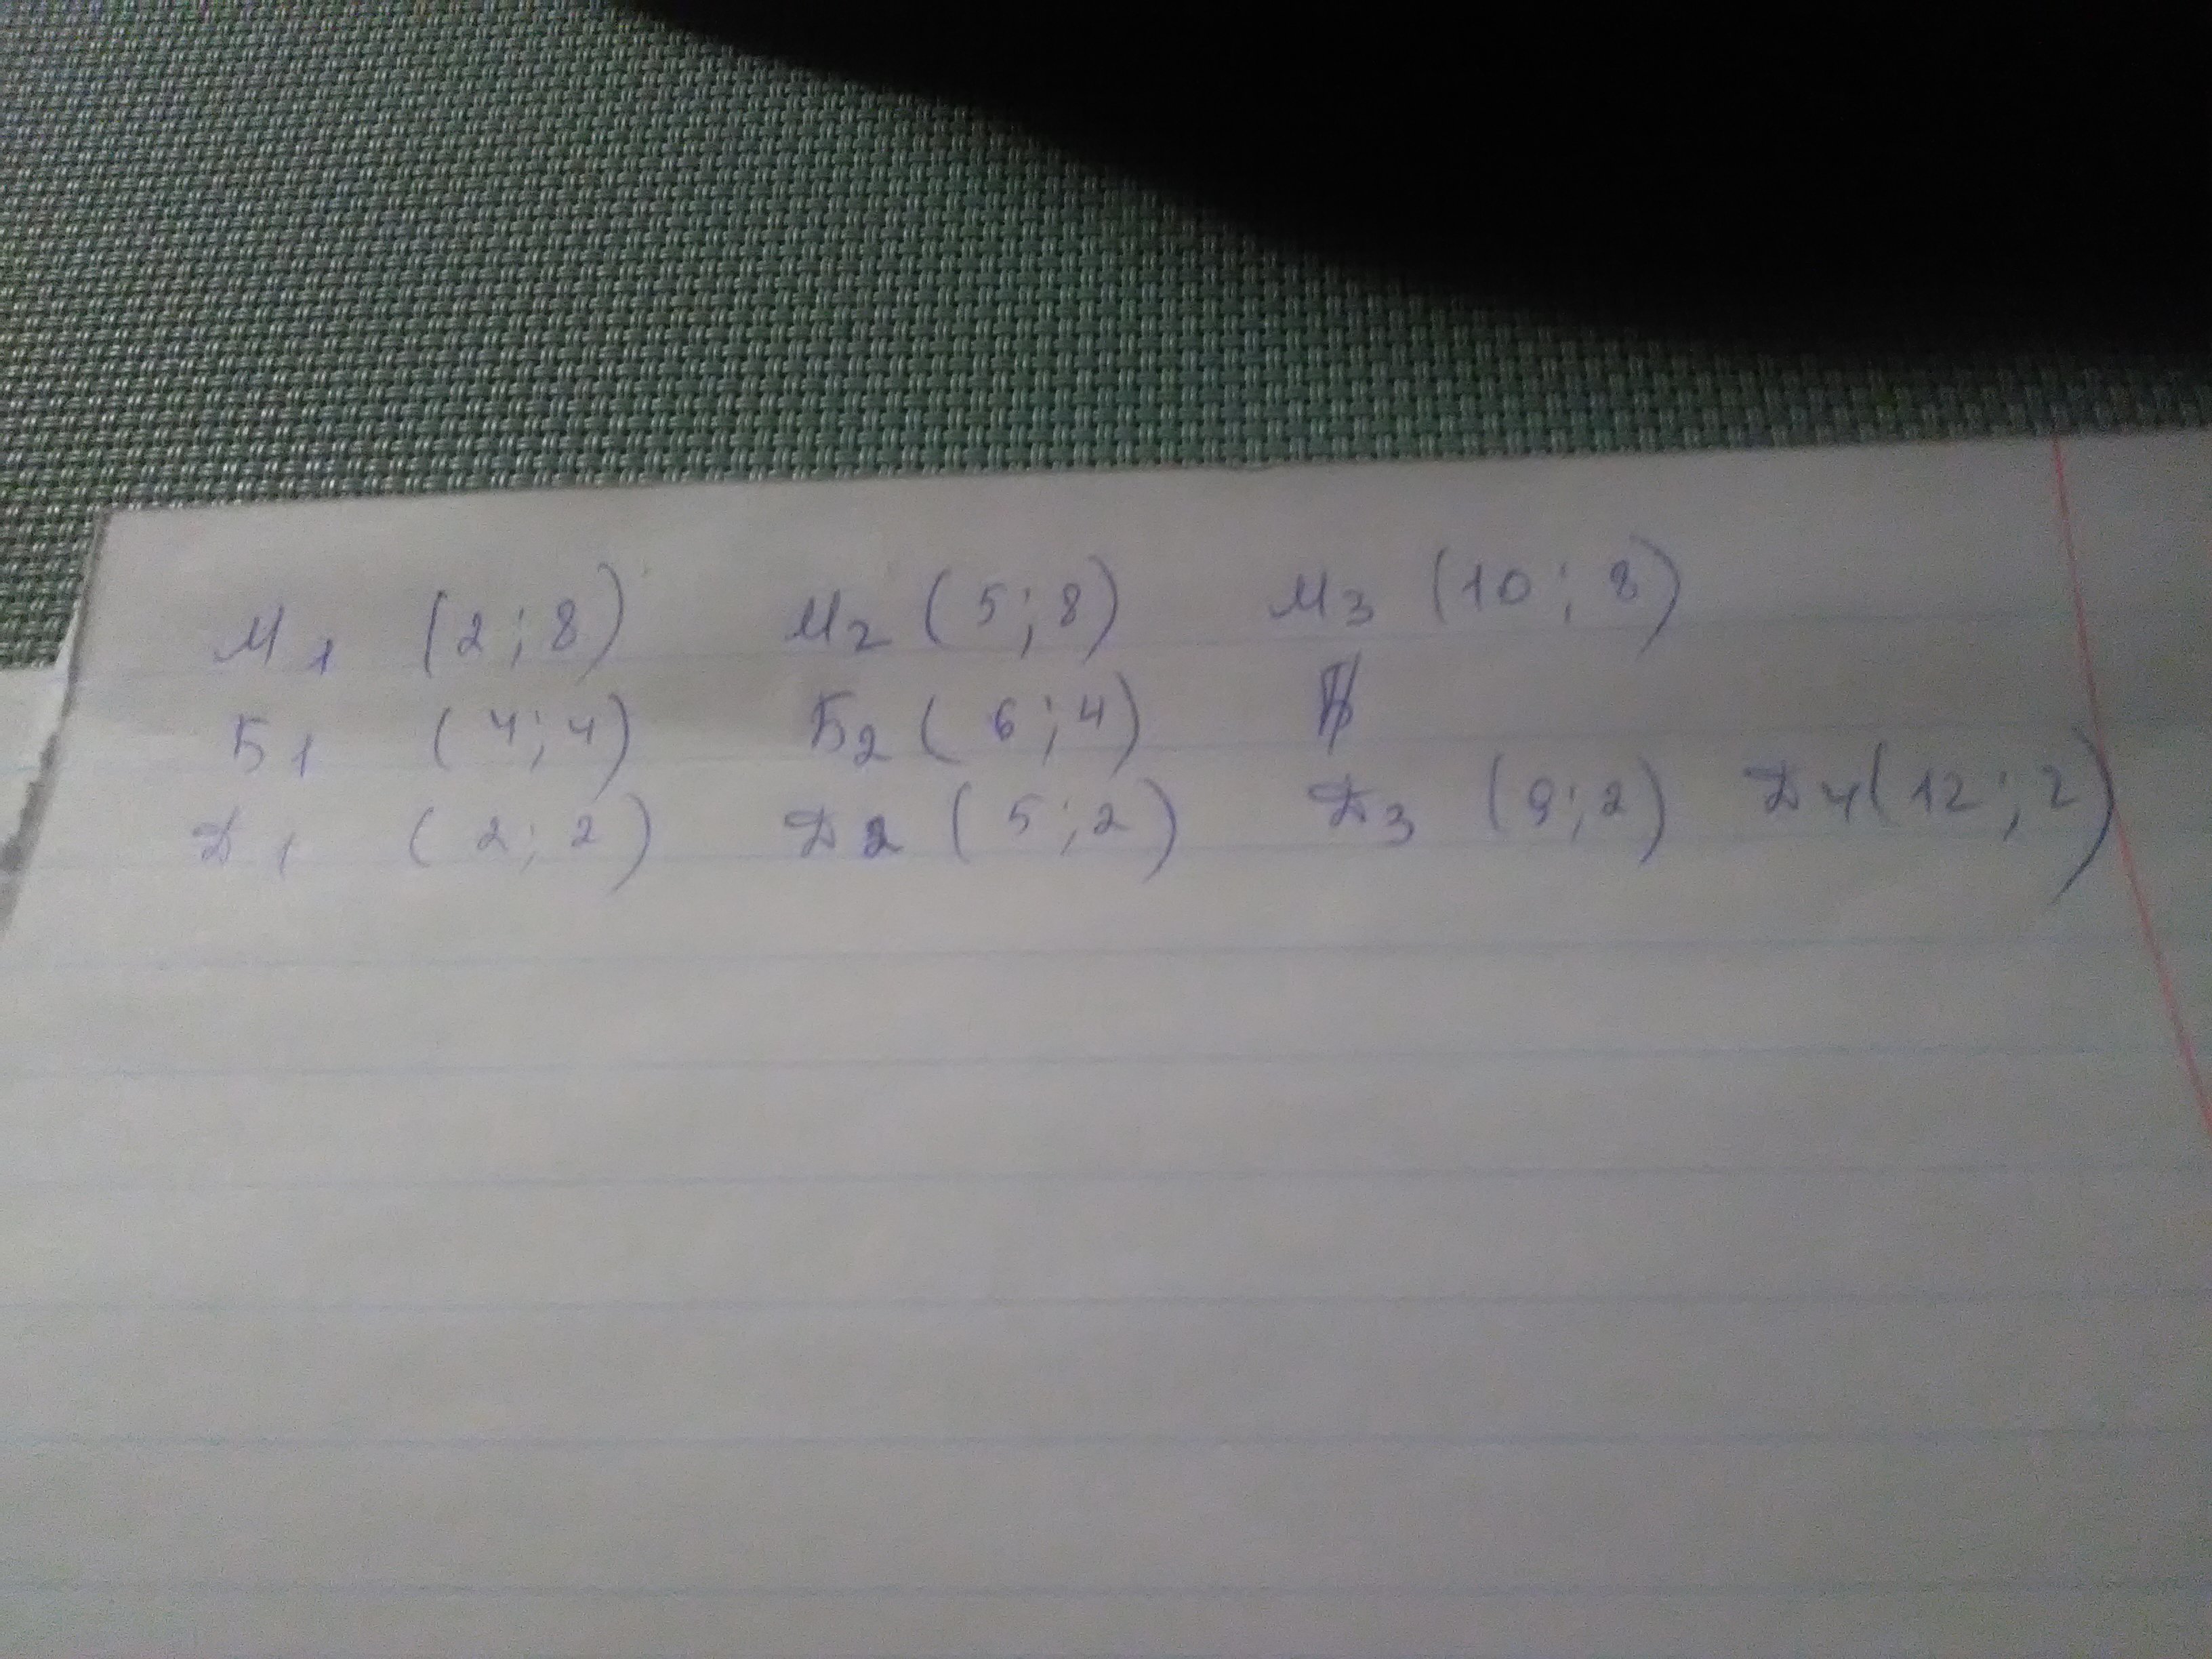 М1 (2;8) М2 (5;8) М3 (10;8)
Б1 (4;4) Б2 (6;4)
Д1 (2;2) Д2 (5;2) Д3 (9;2) Д4 (12;2)